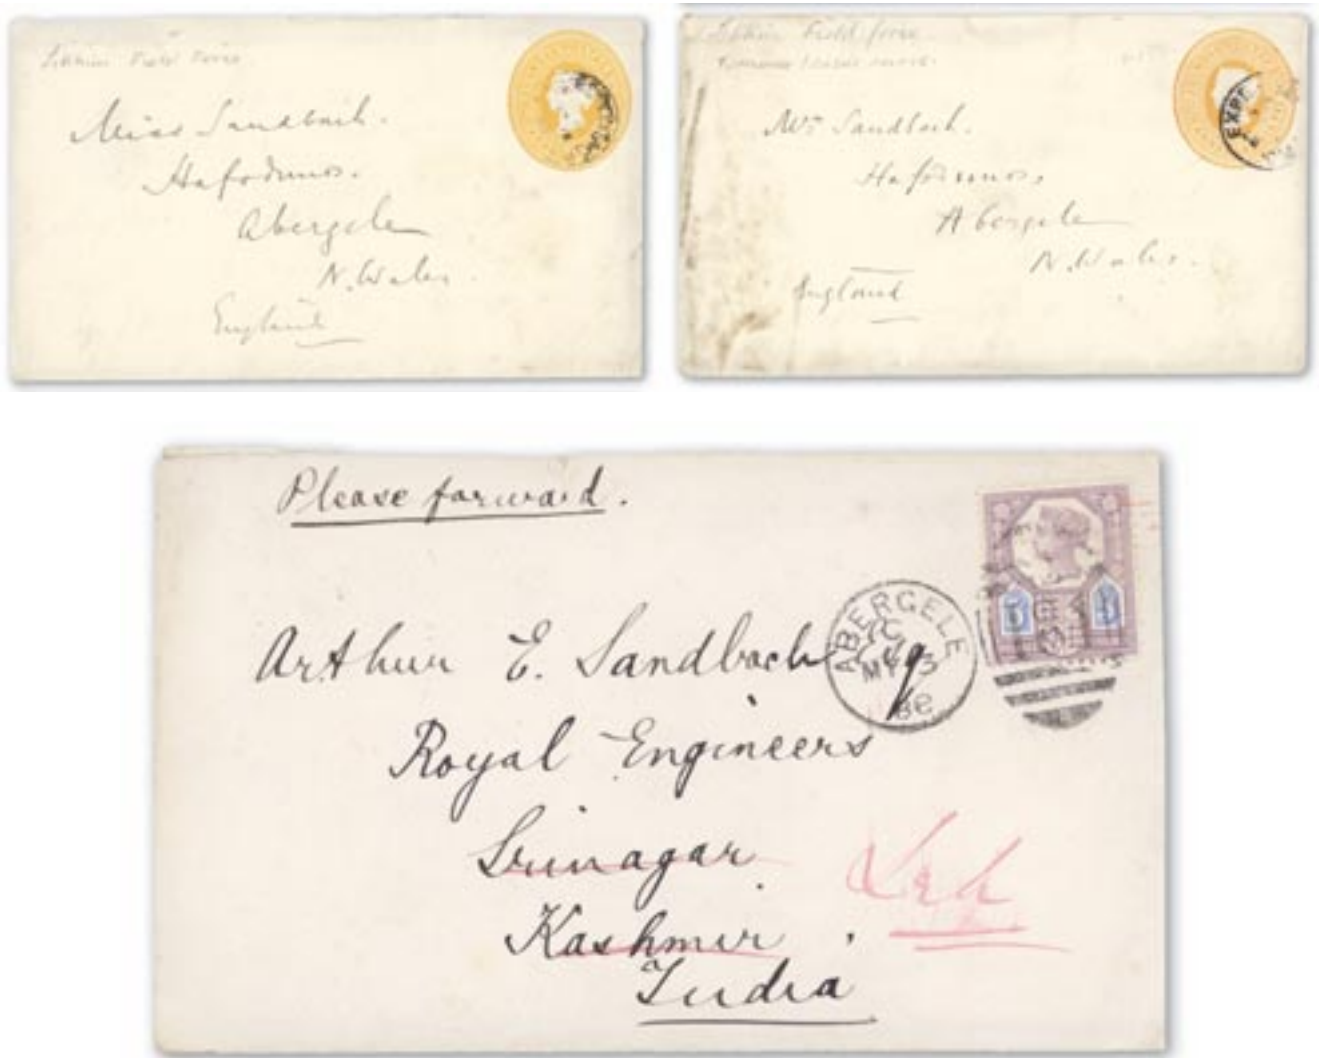 Sikkim Field Force
Miss Sandbach.
Hafodunos.
Abergele
N. Wales.
England
Sikkim Field Force.
Mrs Sandbach.
Hafodunos,
Abergele
N. Wales.
England
EXPE
Please forward.
Arthur E. Sandbach
Royal Engineers
Srinagar
Kashmir.
India
Leh
ABERGELE
MY
5
5